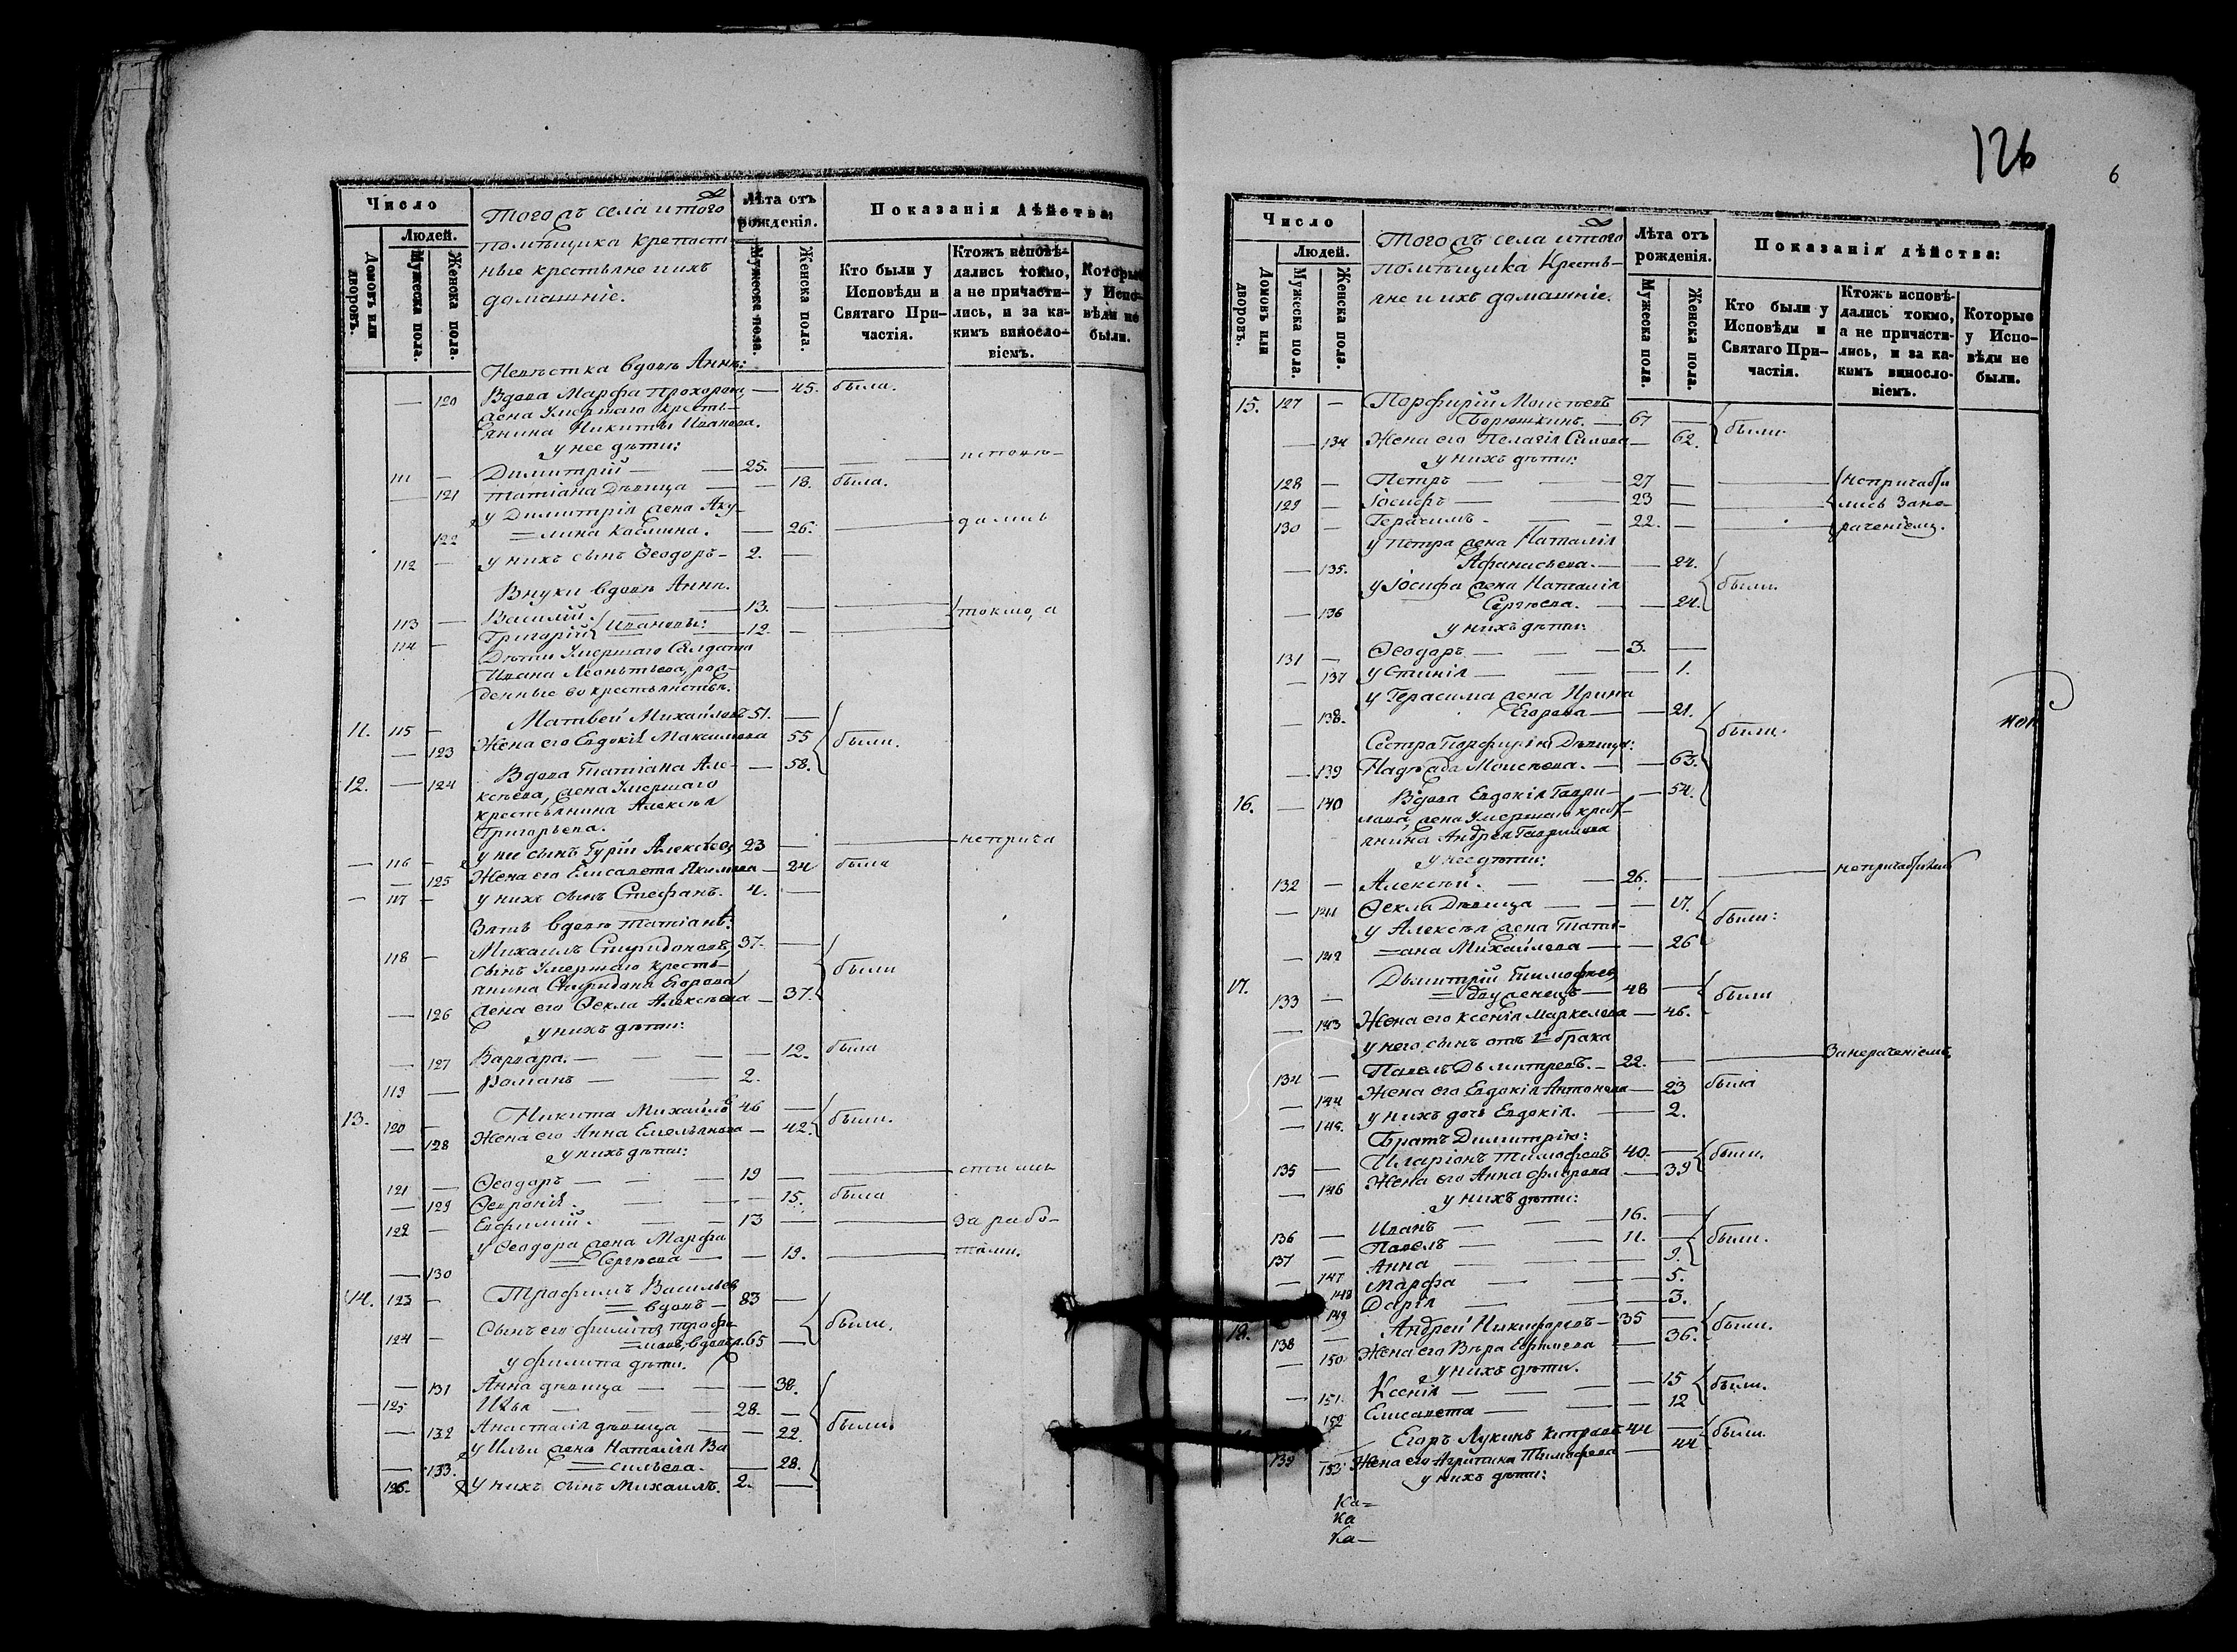 Число
Людей.
Домовъ или дворовъ.
Мужеска пола.
Женска пола.
Тогожъ села и того
помѣщика крепост
ные крестьяне и ихъ
домашніе.
Лѣта отъ рожденія.
Мужеска пола.
Женска пола.
Показанія дѣйства:
Кто были у Исповѣди и Святаго Причастія.
Ктожъ исповѣдались токмо, а не причастились, и за какимъ винословіемъ.
Которые у Исповѣди не были.
Невѣстка вдовѣ Аннѣ:
— 120 Вдова Марфа Прохорова, — 45. была.
жена Умершаго кресть-
янина Никиты Иванова.
у нее дѣти:
111 — Димитрій — 25. — исповѣ-
— 121 Татіана Дѣвица — 18. была.
у Димитрія жена Аку-
122 =лина Косьмина. — 26. — дались
112 — у нихъ сынъ Ѳеодоръ — 2. —
Внуки вдовѣ Аннѣ.
113 — Василій 13. — токмо, а
114 — Григорій Ивановы: 12. —
Дѣти Умершаго Солдата
Ивана Леонтьева, рож-
денные во крестьянствѣ.
11. 115 — Матвей Михайловъ 51. —
— 123 Жена его Евдокія Максимова 55 были.
12. — 124 Вдова Татіана Але- — 58.
ксѣева, жена Умершаго
крестьянина Алексѣя
Григорьева.
— 116 — у нее сынъ Гурій Алексѣевъ 23 — неприча
— 125 Жена его Елисавета Якимова — 24 была
— 117 — у нихъ сынъ Стефанъ. 4. —
Зять вдовѣ Татіанѣ:
118 — Михаилъ Спиридоновъ, 37. —
сынъ Умершаго кресть- были
янина Спиридона Егорова
— 126 жена его Ѳекла Алексѣева — 37.
у нихъ дѣти:
— 127 Варвара. — 12. была
119 — Романъ — 2.
13. 120 — Никита Михайловъ 46 — были.
— 128 Жена его Анна Емельянова — 42.
у нихъ дѣти:
121 — Ѳеодоръ — 19 — стились
— 129 Ѳевронія. — 15. была
122 — Евфимій. — 13 — за рабо-
у Ѳеодора жена Марфа
— 130 Сергѣева — 19. — тами.
14. 123 — Трофимъ Васильевъ
=вдовъ — 83 —
124 — Сынъ его Филиппъ Трофи- были.
=мовъ, вдовъ. 65 —
у Филиппа дѣти.
— 131 Анна дѣвица — 38.
125 Илья — 28. —
— 132 Анастасія дѣвица — 22. были.
у Ильи жена Наталія Ва
— 133. =сильева. — 28.
126. у нихъ сынъ Михаилъ. 2. —
126
6
Число
Людей.
Домовъ или дворовъ.
Мужеска пола.
Женска пола.
Тогожъ села и того
помѣщика Кресть-
яне и ихъ домашніе.
Лѣта отъ рожденія.
Мужеска пола.
Женска пола.
Показанія дѣйства:
Кто были у Исповѣди и Святаго Причастія.
Ктожъ исповѣдались токмо, а не причастились, и за какимъ винословіемъ.
Которые у Исповѣди не были.
15. 127 — Порфирій Моисѣевъ
Борюшкинъ. — 67 — были.
— 134 Жена его Пелагія Симова — 62.
у нихъ дѣти:
128 — Петръ — 27 —
129 — Іосифъ — 23 — лись Зане-
130 — Герасимъ. — 22. — раченіемъ.
у Петра жена Наталія
— 135. Афанасьева. — 24.
у Іосифа жена Наталія были.
— 136 Сергѣева. — 24.
у нихъ дѣти:
131 — Ѳеодоръ — 3. —
— 137 Устинія — 1.
у Герасима жена Ирина
— 138. Егорова — 21.
Сестра Порфирія Дѣвица: были.
— 139 Надежда Моисѣева. — 63.
16. — 140 Вдова Евдокія Гаври- — 54.
лова, жена Умершаго крест-
янина Андрея Гаврилова
у нее дѣти:
132 — Алексѣй. — 26. —
— 141 Ѳекла Дѣвица — 17.
у Алексѣя жена Тать- были:
— 142 =яна Михайлова — 26
17. 133 — Дьмитрій Тимофеевъ,
=двуженецъ — 48 — были
— 143 Жена его Ксенія Маркелова — 46.
у него сынъ отъ 1го брака
134 — Павелъ Дьмитревъ. — 22. — Занераченіемъ
— 144 Жена его Евдокія Антонова — 23 была
— 145. у нихъ дочь Евдокія. — 2.
Братъ Димитрію:
135 — Иларіонъ Тимофеевъ 40. — были.
— 146 Жена его Анна Фирсова — 39
у нихъ дѣти:
136 — Иванъ — 16. —
137 — Павелъ — 11. — были.
— 147 Анна — 9.
148 Марфа — 5.
149 Дарія — 3.
18. 138 — Андрей Никифоровъ — 35 — были.
— 150 Жена его Вѣра Ефимова — 36.
у нихъ дѣти.
— 151. Ксенія — 15 были.
152 Елисавета — 12
139 Егоръ Лукинъ 44 — были.
153 Жена его Агрипина Тимофеева — 44
у нихъ дѣти:
Ка=
Ка
Ка—